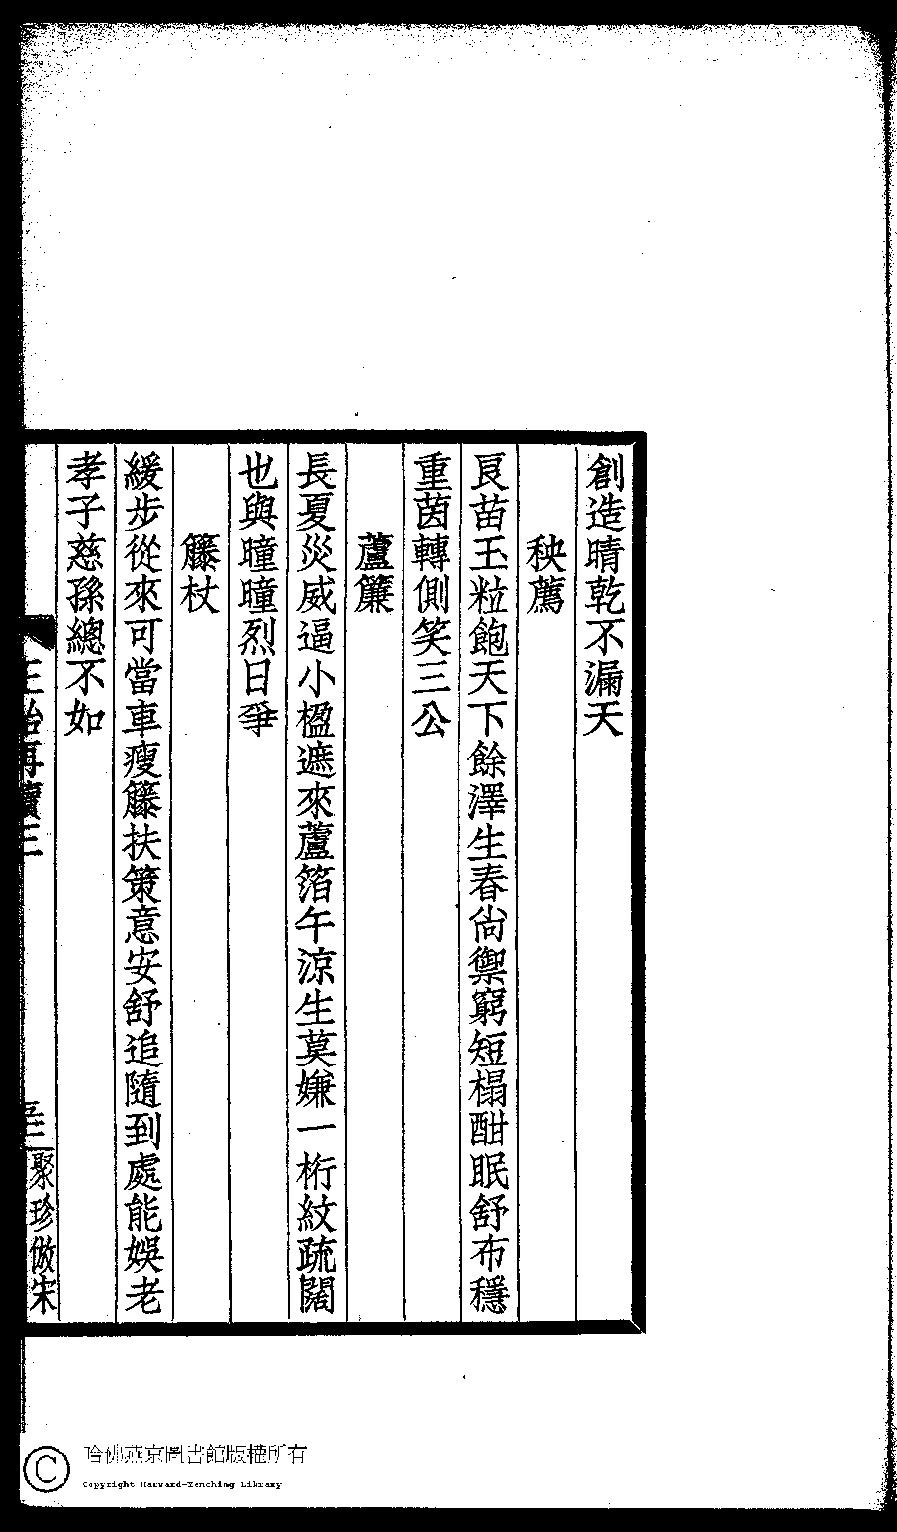 創造晴乾不漏天
秧薦
艮苗玉粒飽天下餘澤生春尙禦窮短榻酣眠舒布穩
重茵轉側笑三公
蘆簾
長夏災威逼小楹遮來蘆箔午涼生莫嫌一桁紋疏闊
也與曈曈烈日爭
籐杖
緩步從來可當車瘦籐扶策意安舒追隨到處能娛老
孝子慈孫總不如
再續三
聚珍倣宋
哈佛燕京圖書館版權所有
Copyright Harvard-Yenching Library